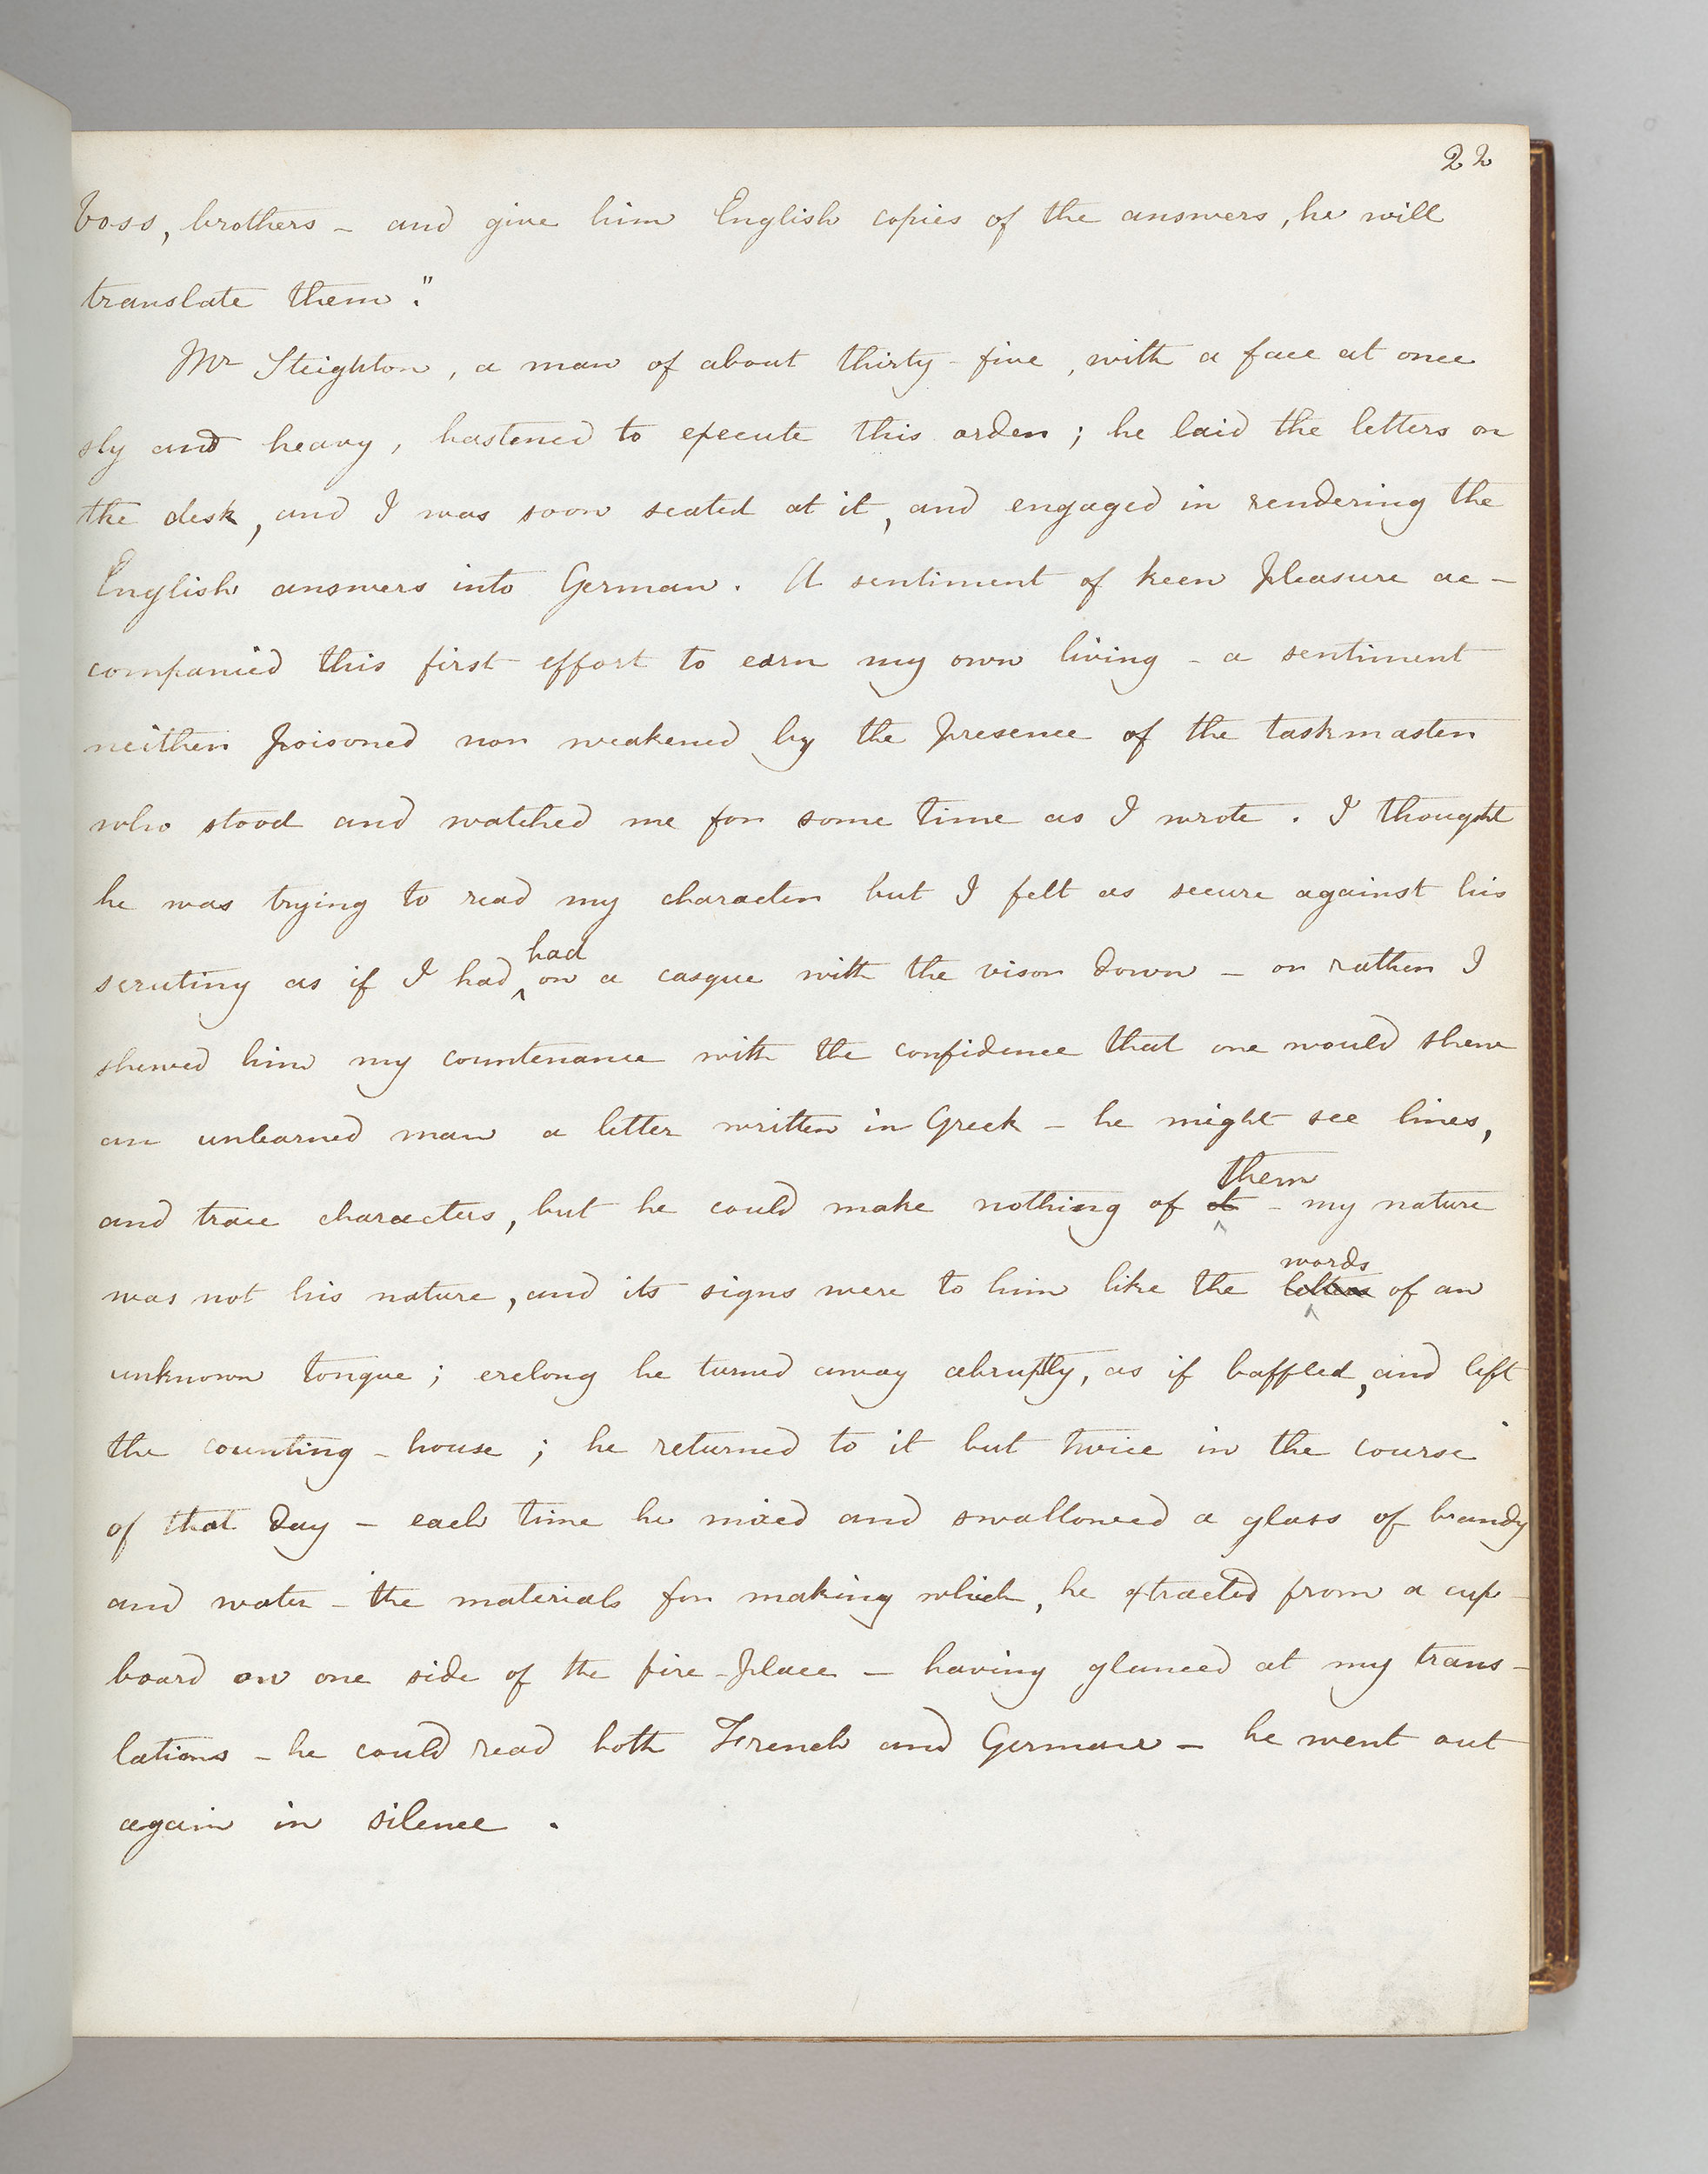 22
Voss, brothers - and give him English copies of the answers, he will
translate them."
Mr Steighton, a man of about thirty-five, with a face at once
sly and heavy, hastened to execute this order; he laid the letters on
the desk, and I was soon seated at it, and engaged in rendering the
English answers into German. A sentiment of keen pleasure ac-
companied this first effort to earn my own living - a sentiment
neither poisoned nor weakened by the presence of the taskmaster
who stood and watched me for some time as I wrote. I thought
he was trying to read my character but I felt as secure against his
scrutiny as if I had had on a casque with the visor down - or rather I
shewed him my countenance with the confidence that one would shew
an unlearned man a letter written in Greek - he might see lines,
and trace characters, but he could make nothing of it them - my nature
was not his nature, and its signs were to him like the letters words of an
unknown tongue; erelong he turned away abruptly, as if baffled, and left
the counting-house; he returned to it but twice in the course
of that day - each time he mixed and swallowed a glass of brandy
and water - the materials for making which, he extracted from a cup-
board on one side of the fire-place - having glanced at my trans-
lations - he could read both French and German - he went out
again in silence.